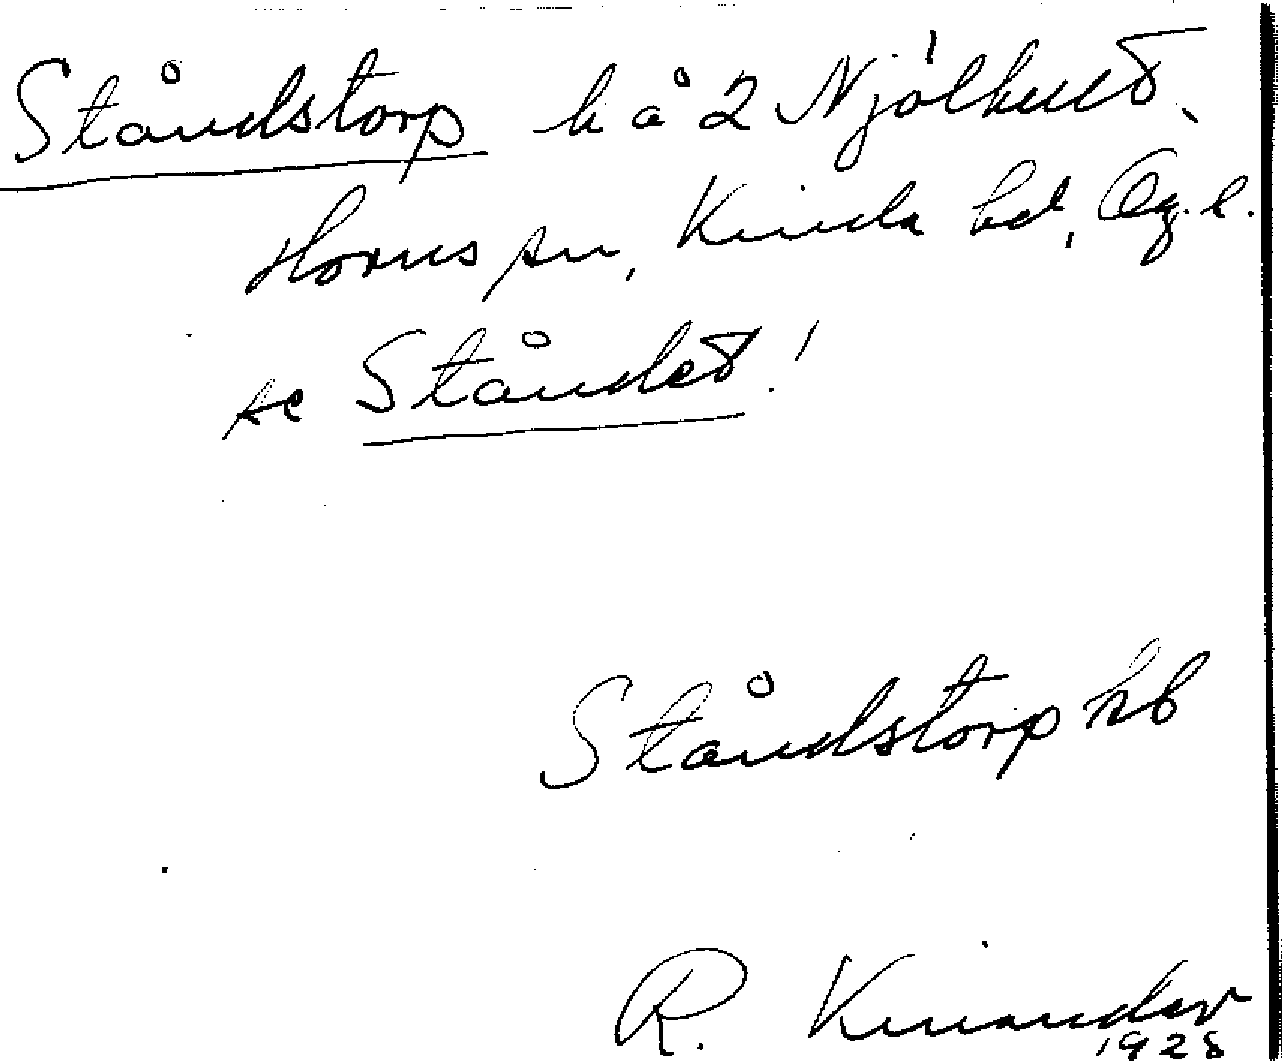 Ståndstorp h å 2 Njölhult,
Horns sn, Kinda hd, Ög. l.
se Ståndet!
Ståndstorp kb
R. Kinander
1928